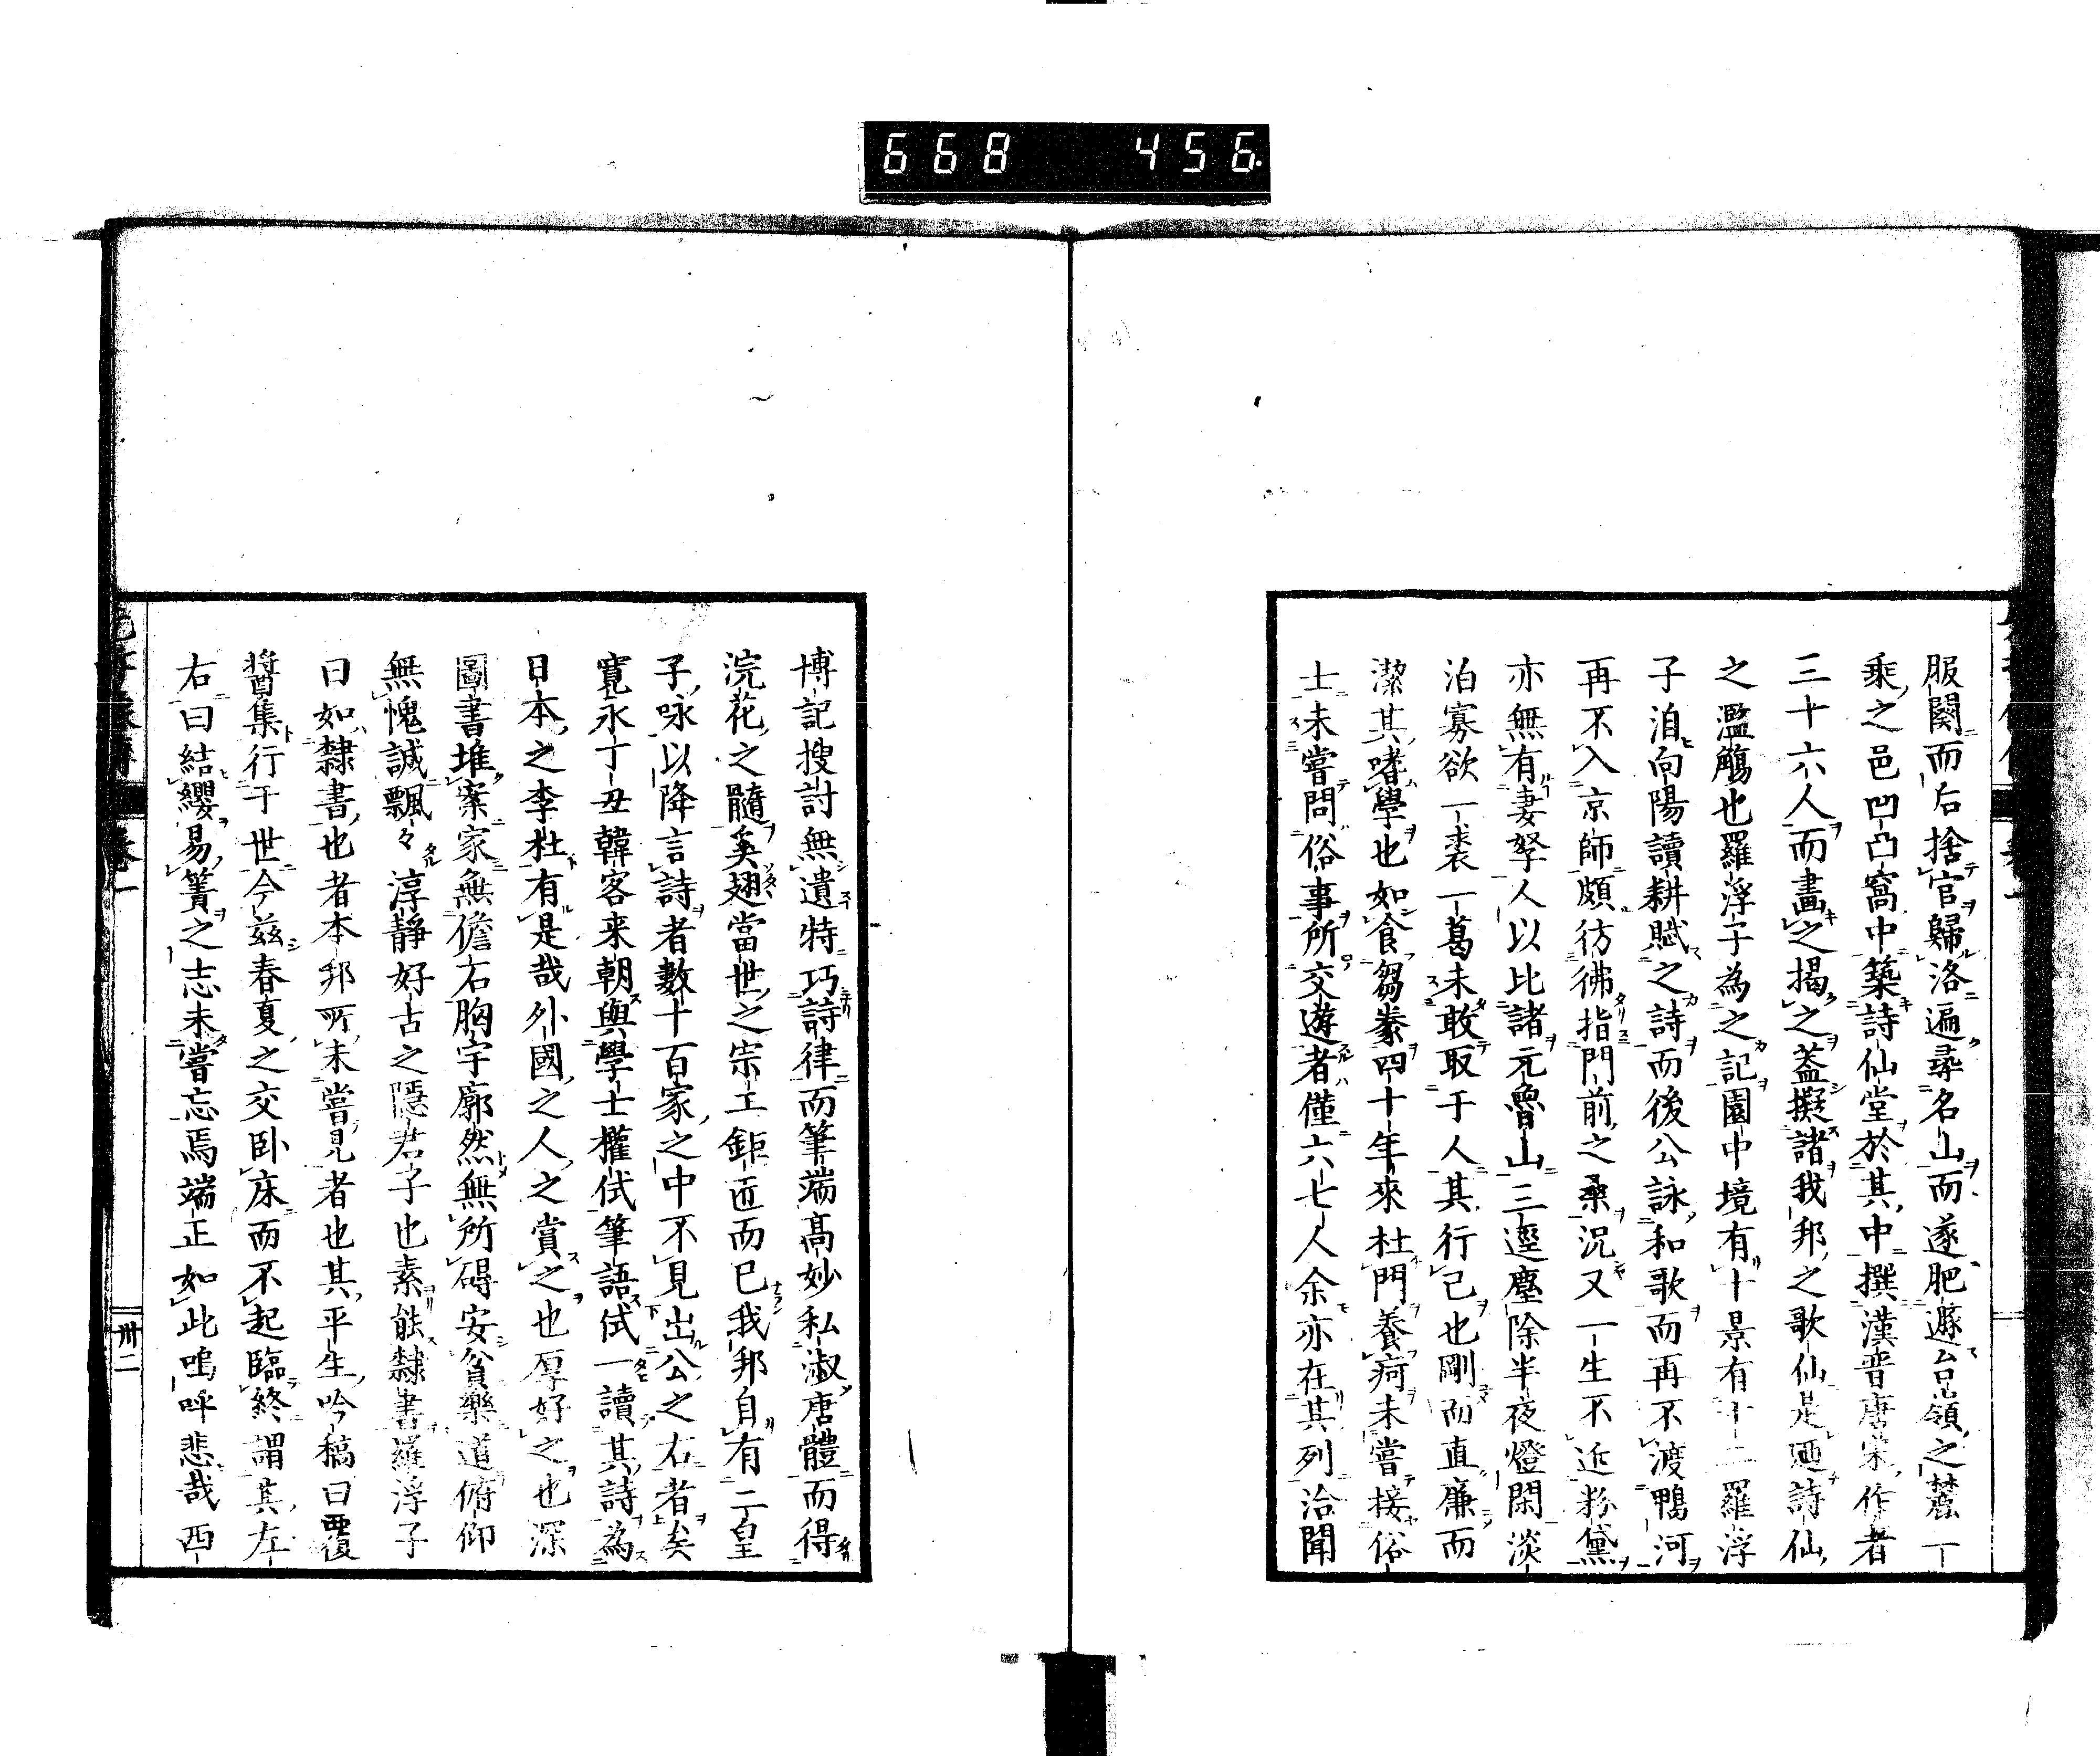 668 456
服闋而后捨官歸洛遍尋名山而遂肥遯台嶺之麓一
乘之邑凹凸窩中築詩仙堂於其中撰漢晉唐宋作者
三十六人而畫之揭之蓋擬諸我邦之歌仙是迺詩仙
之濫觴也羅浮子為之記園中境有十景有十二羅浮
子洎向陽讀耕賦之詩而後公詠和歌而再不渡鴨河
再不入京師頗彷彿指門前之桑況又一生不近粉黛
亦無有妻孥人以比諸元魯山三逕塵除半夜燈閑淡
泊寡欲一裘一葛未敢取于人其行己也剛而直廉而
潔其嗜學也如食芻豢四十年來杜門養痾未嘗接俗
士未嘗問俗事所交遊者僅六七人余亦在其列洽聞
博記搜討無遺特巧詩律而筆端高妙私淑唐體而得
浣花之髓奚翅當世之宗工鉅匠而已我邦自有二皇
子咏以降言詩者數十百家之中不見出公之右者矣
寬永丁丑韓客来朝與學士權侙筆語侙一讀其詩為
日本之李杜有是哉外國之人之賞之也厚好之也深
圖書堆案家無儋石胸宇廓然無所碍安貧樂道俯仰
無愧誠飄々淳靜好古之隱君子也素能隸書羅浮子
曰如隸書也者本邦所未嘗見者也其平生吟稿曰覆
醬集行于世今茲春夏之交卧床而不起臨終謂其左
右曰結纓易簀之志未嘗忘焉端正如此嗚呼悲哉西
卷一
卅二